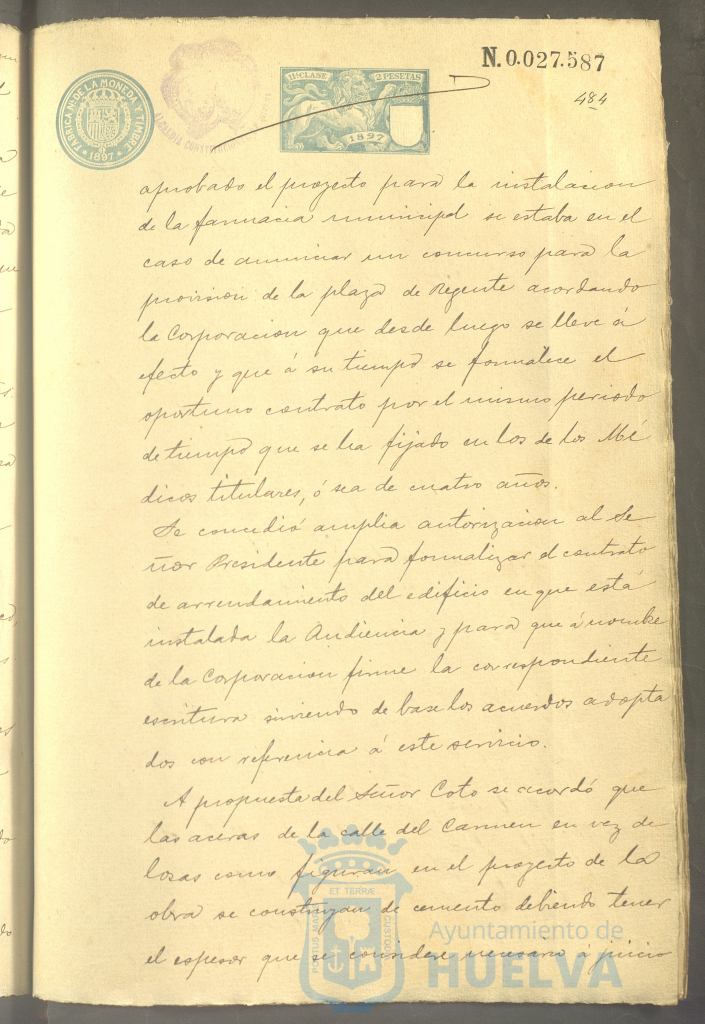 N.0.027.587
484
FABRICA Nl. DE LA MONEDA Y TIMBRE
* 1897 *
ALCALDIA
11ª CLASE 2 PESETAS
1897
aprobado el proyecto para la instalacion
de la farmacia municipal se estaba en el
caso de anunciar un concurso para la
provision de la plaza de Regente acordando
la Corporacion que desde luego se lleve á
efecto y que á su tiempo se formalice el
oportuno contrato por el mismo periodo
de tiempo que se ha fijado en los de los Mé
dicos titulares, ó sea de cuatro años.
Se concedió amplia autorizacion al Se
ñor Presidente para formalizar el contrato
de arrendamiento del edificio en que está
instalada la Audiencia y para que á nombre
de la Corporacion firme la correspondiente
escritura sirviendo de base los acuerdos adopta
dos con referencia á este servicio.
A propuesta del Señor Coto se acordó que
las aceras de la calle del Carmen en vez de
losas como figuran en el proyecto de la
obra se construyan de cemento debiendo tener
el espesor que se considere necesario á juicio
PORTUS MARIS ET TERRÆ CUSTODIA
Ayuntamiento de
HUELVA